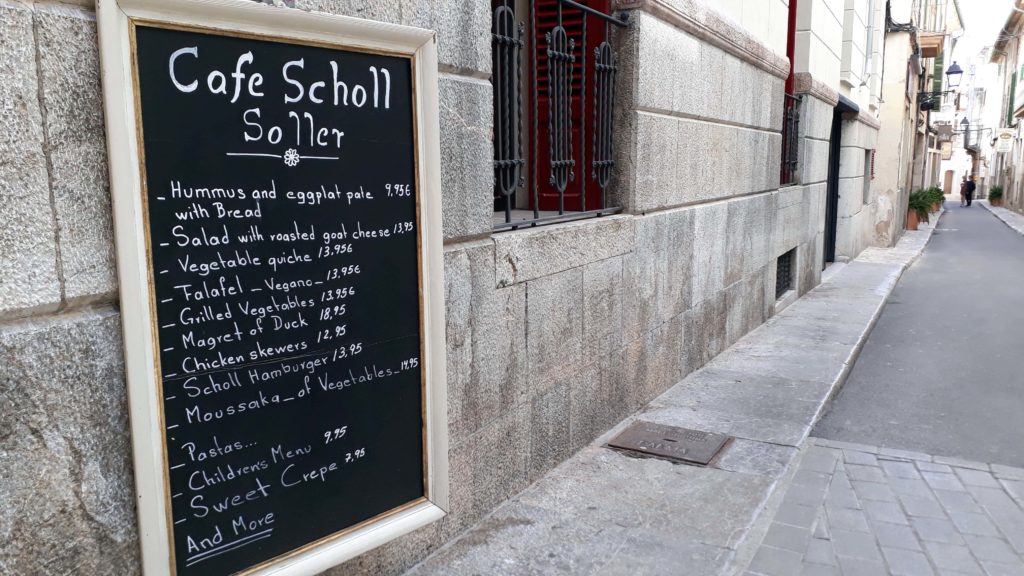 Cafe Scholl
Soller
- Hummus and eggplat pate 9,95€
with Bread
- Salad with roasted goat cheese 13,95
- Vegetable quiche 13,95€
- Falafel - Vegano - 13,95€
- Grilled Vegetables 13,95€
- Magret of Duck 18,95
- Chicken skewers 12,95
- Scholl Hamburger 13,95
- Moussaka - of Vegetables - 14,95
- Pastas...
- Childrens Menu 9,95
- Sweet Crepe 7,95
And More